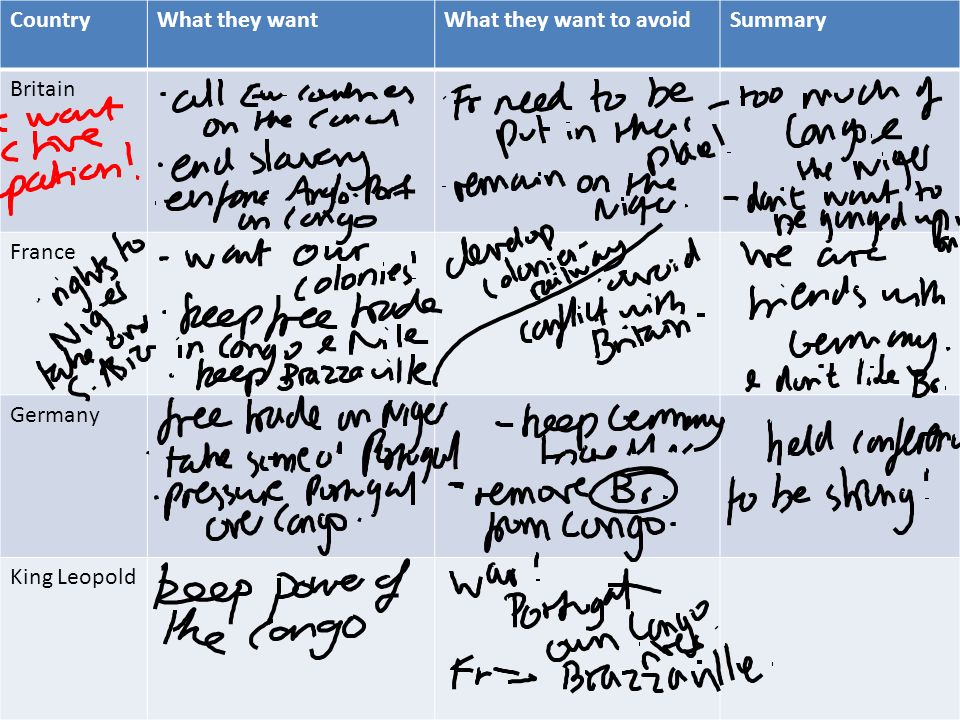 Country What they want What they want to avoid Summary
Britain
want
pation!
· all Eur countries
on the
· end slavery
· enforce Anglo-Port
in Congo
· Fr need to be
put in their
place!
- remain on the
Niger.
- too much of
Congo &
the Niger
- don't want to
be ganged up
on
France
· rights to
Niger
take over
- want our
colonies!
· keep free trade
in Congo & Nile
· keep Brazzaville
develop
colonies -
railway
avoid
conflict with
Britain -
We are
friends with
Germany.
& don't like Br.
Germany
free trade on Niger
· take some o' Portugal
· pressure Portugal
over Congo.
- keep Germany
- remove Br.
from Congo.
held conference
to be strong!
King Leopold
keep power of
the Congo
war!
Portugal
own Congo
Fr → Brazzaville.